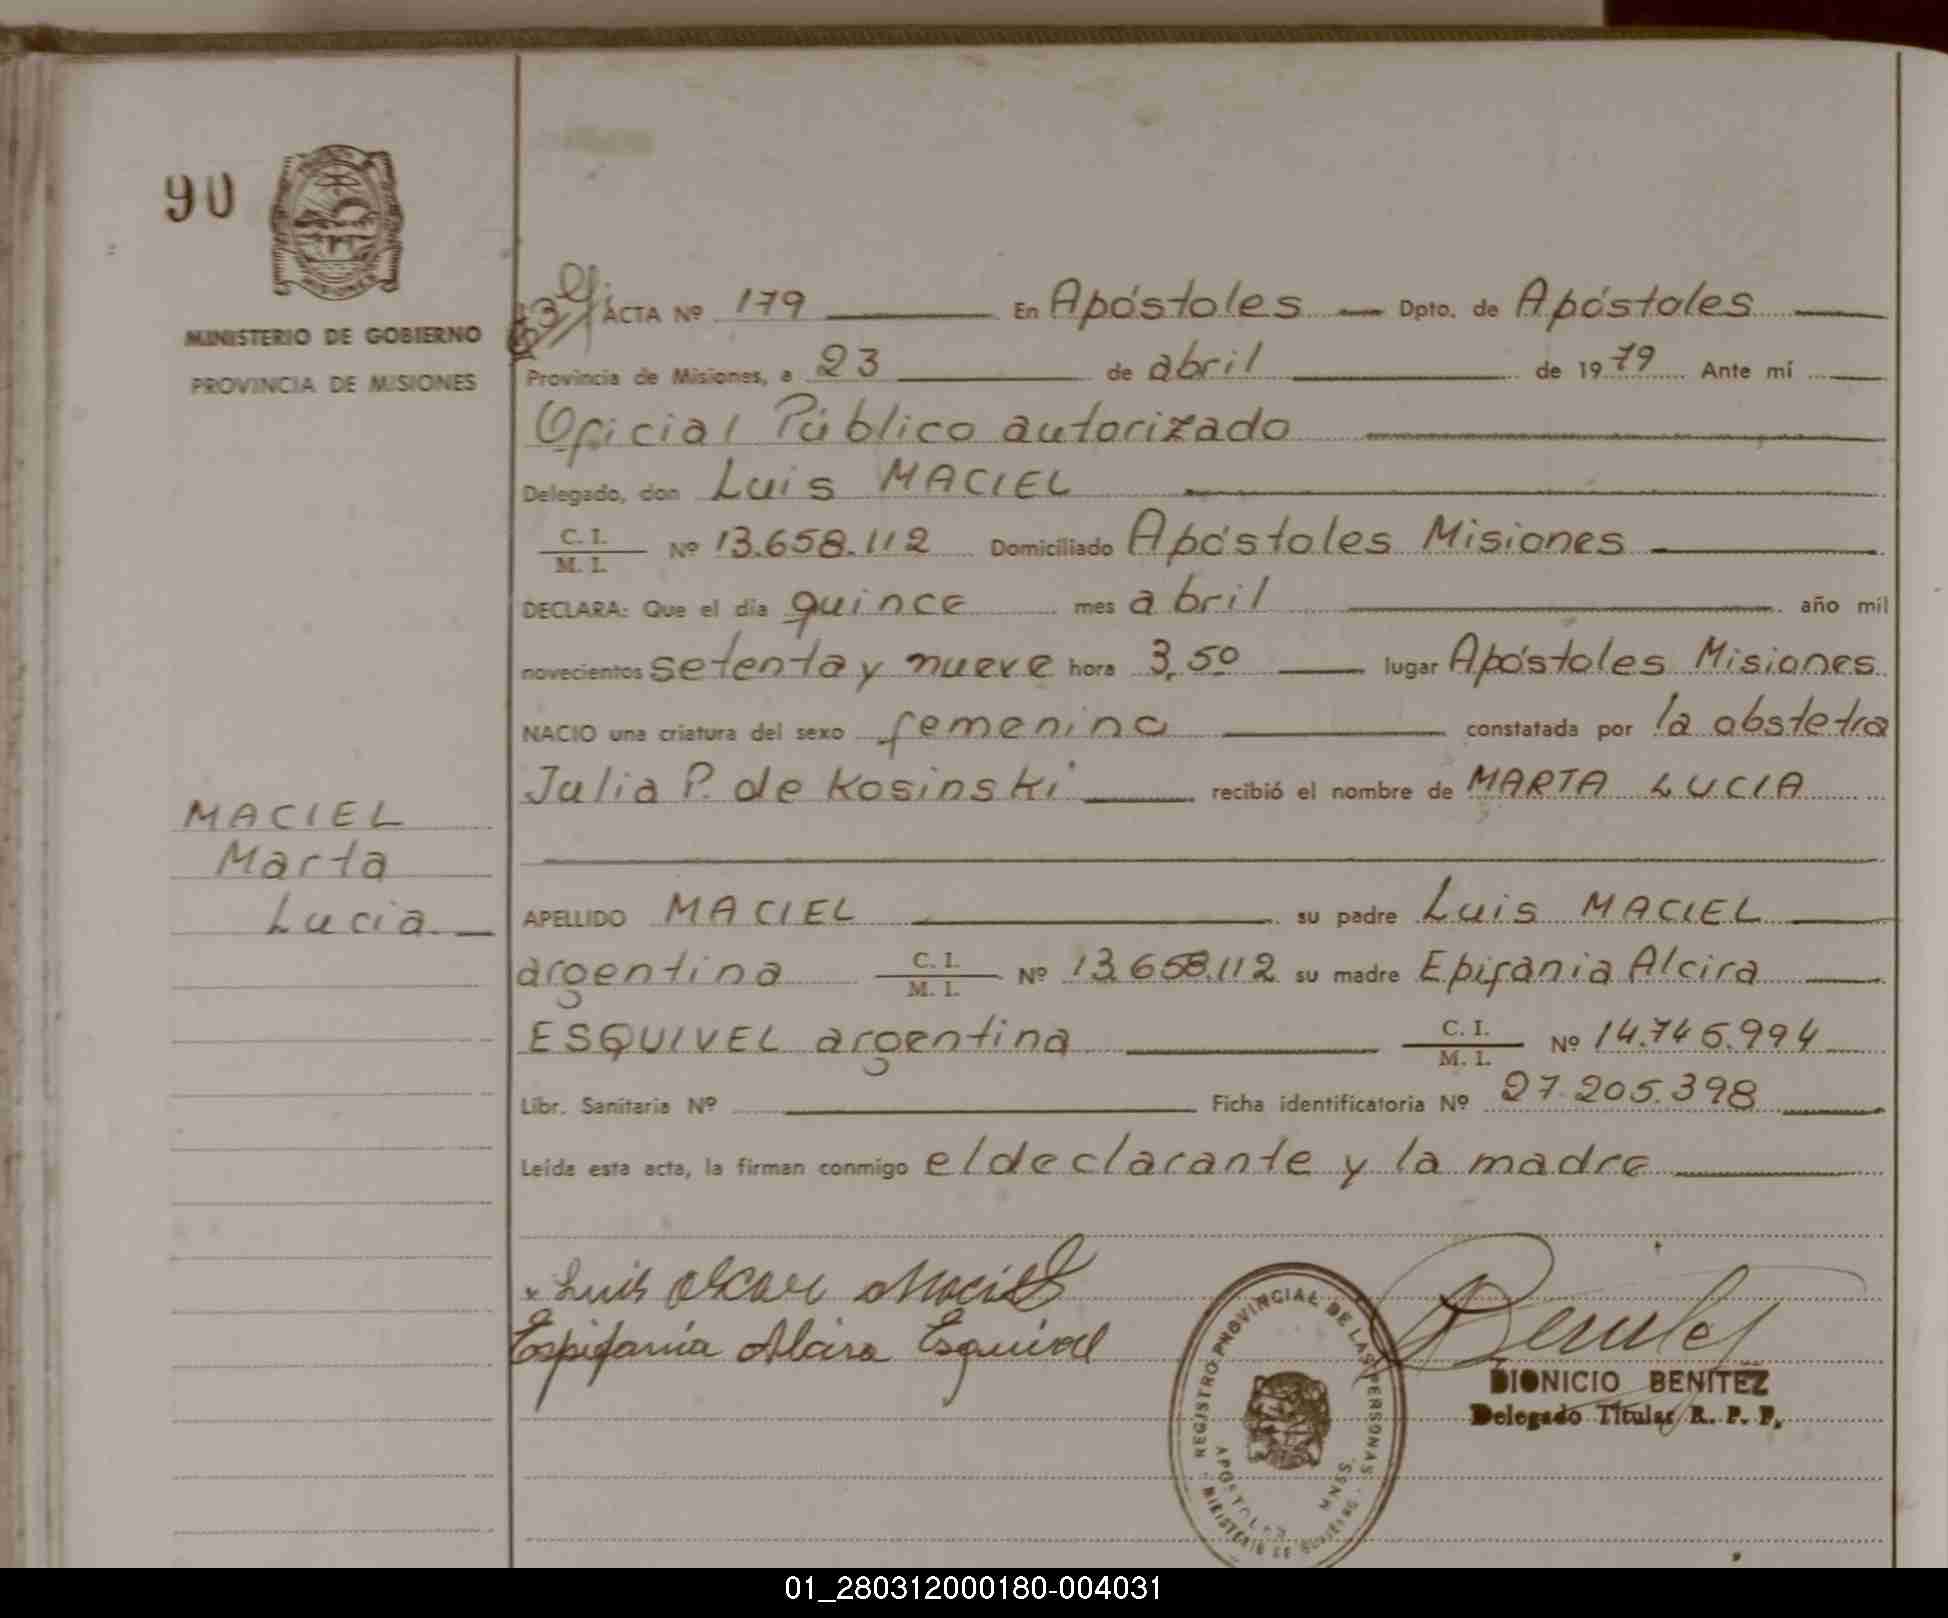 90
MINISTERIO DE GOBIERNO
PROVINCIA DE MISIONES
ACTA Nº 179 En Apóstoles Dpto. de Apóstoles
Provincia de Misiones, a 23 de abril de 1979 Ante mí
Oficial Público autorizado
Delegado, don Luis MACIEL
C. I.
M. I.
Nº 13.658.112 Domiciliado Apóstoles Misiones
DECLARA: Que el día quince mes abril año mil
novecientos setenta y nueve hora 3,50 lugar Apóstoles Misiones
NACIO una criatura del sexo femenino constatada por la obstetra
Julia P. de Kosinski recibió el nombre de MARTA LUCIA
MACIEL
Marta
Lucia
APELLIDO MACIEL su padre Luis MACIEL
argentina C. I. M. I. Nº 13.658.112 su madre Epifania Alcira
ESQUIVEL argentina C. I. M. I. Nº 14.746.994
Libr. Sanitaria Nº Ficha identificatoria Nº 27.205.398
Leída esta acta, la firman conmigo el declarante y la madre
x Luis Oscar Maciel
Epifania Alcira Esquivel
Benitez
DIONICIO BENITEZ
Delegado Titular R. P. P.
REGISTRO PROVINCIAL DE LAS PERSONAS
APOSTOLES MNES.
MINISTERIO DE GOBIERNO
01_280312000180-004031